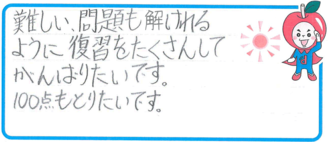 難しい、問題も解けれる
ように、復習をたくさんして
がんばりたいです。
100点もとりたいです。